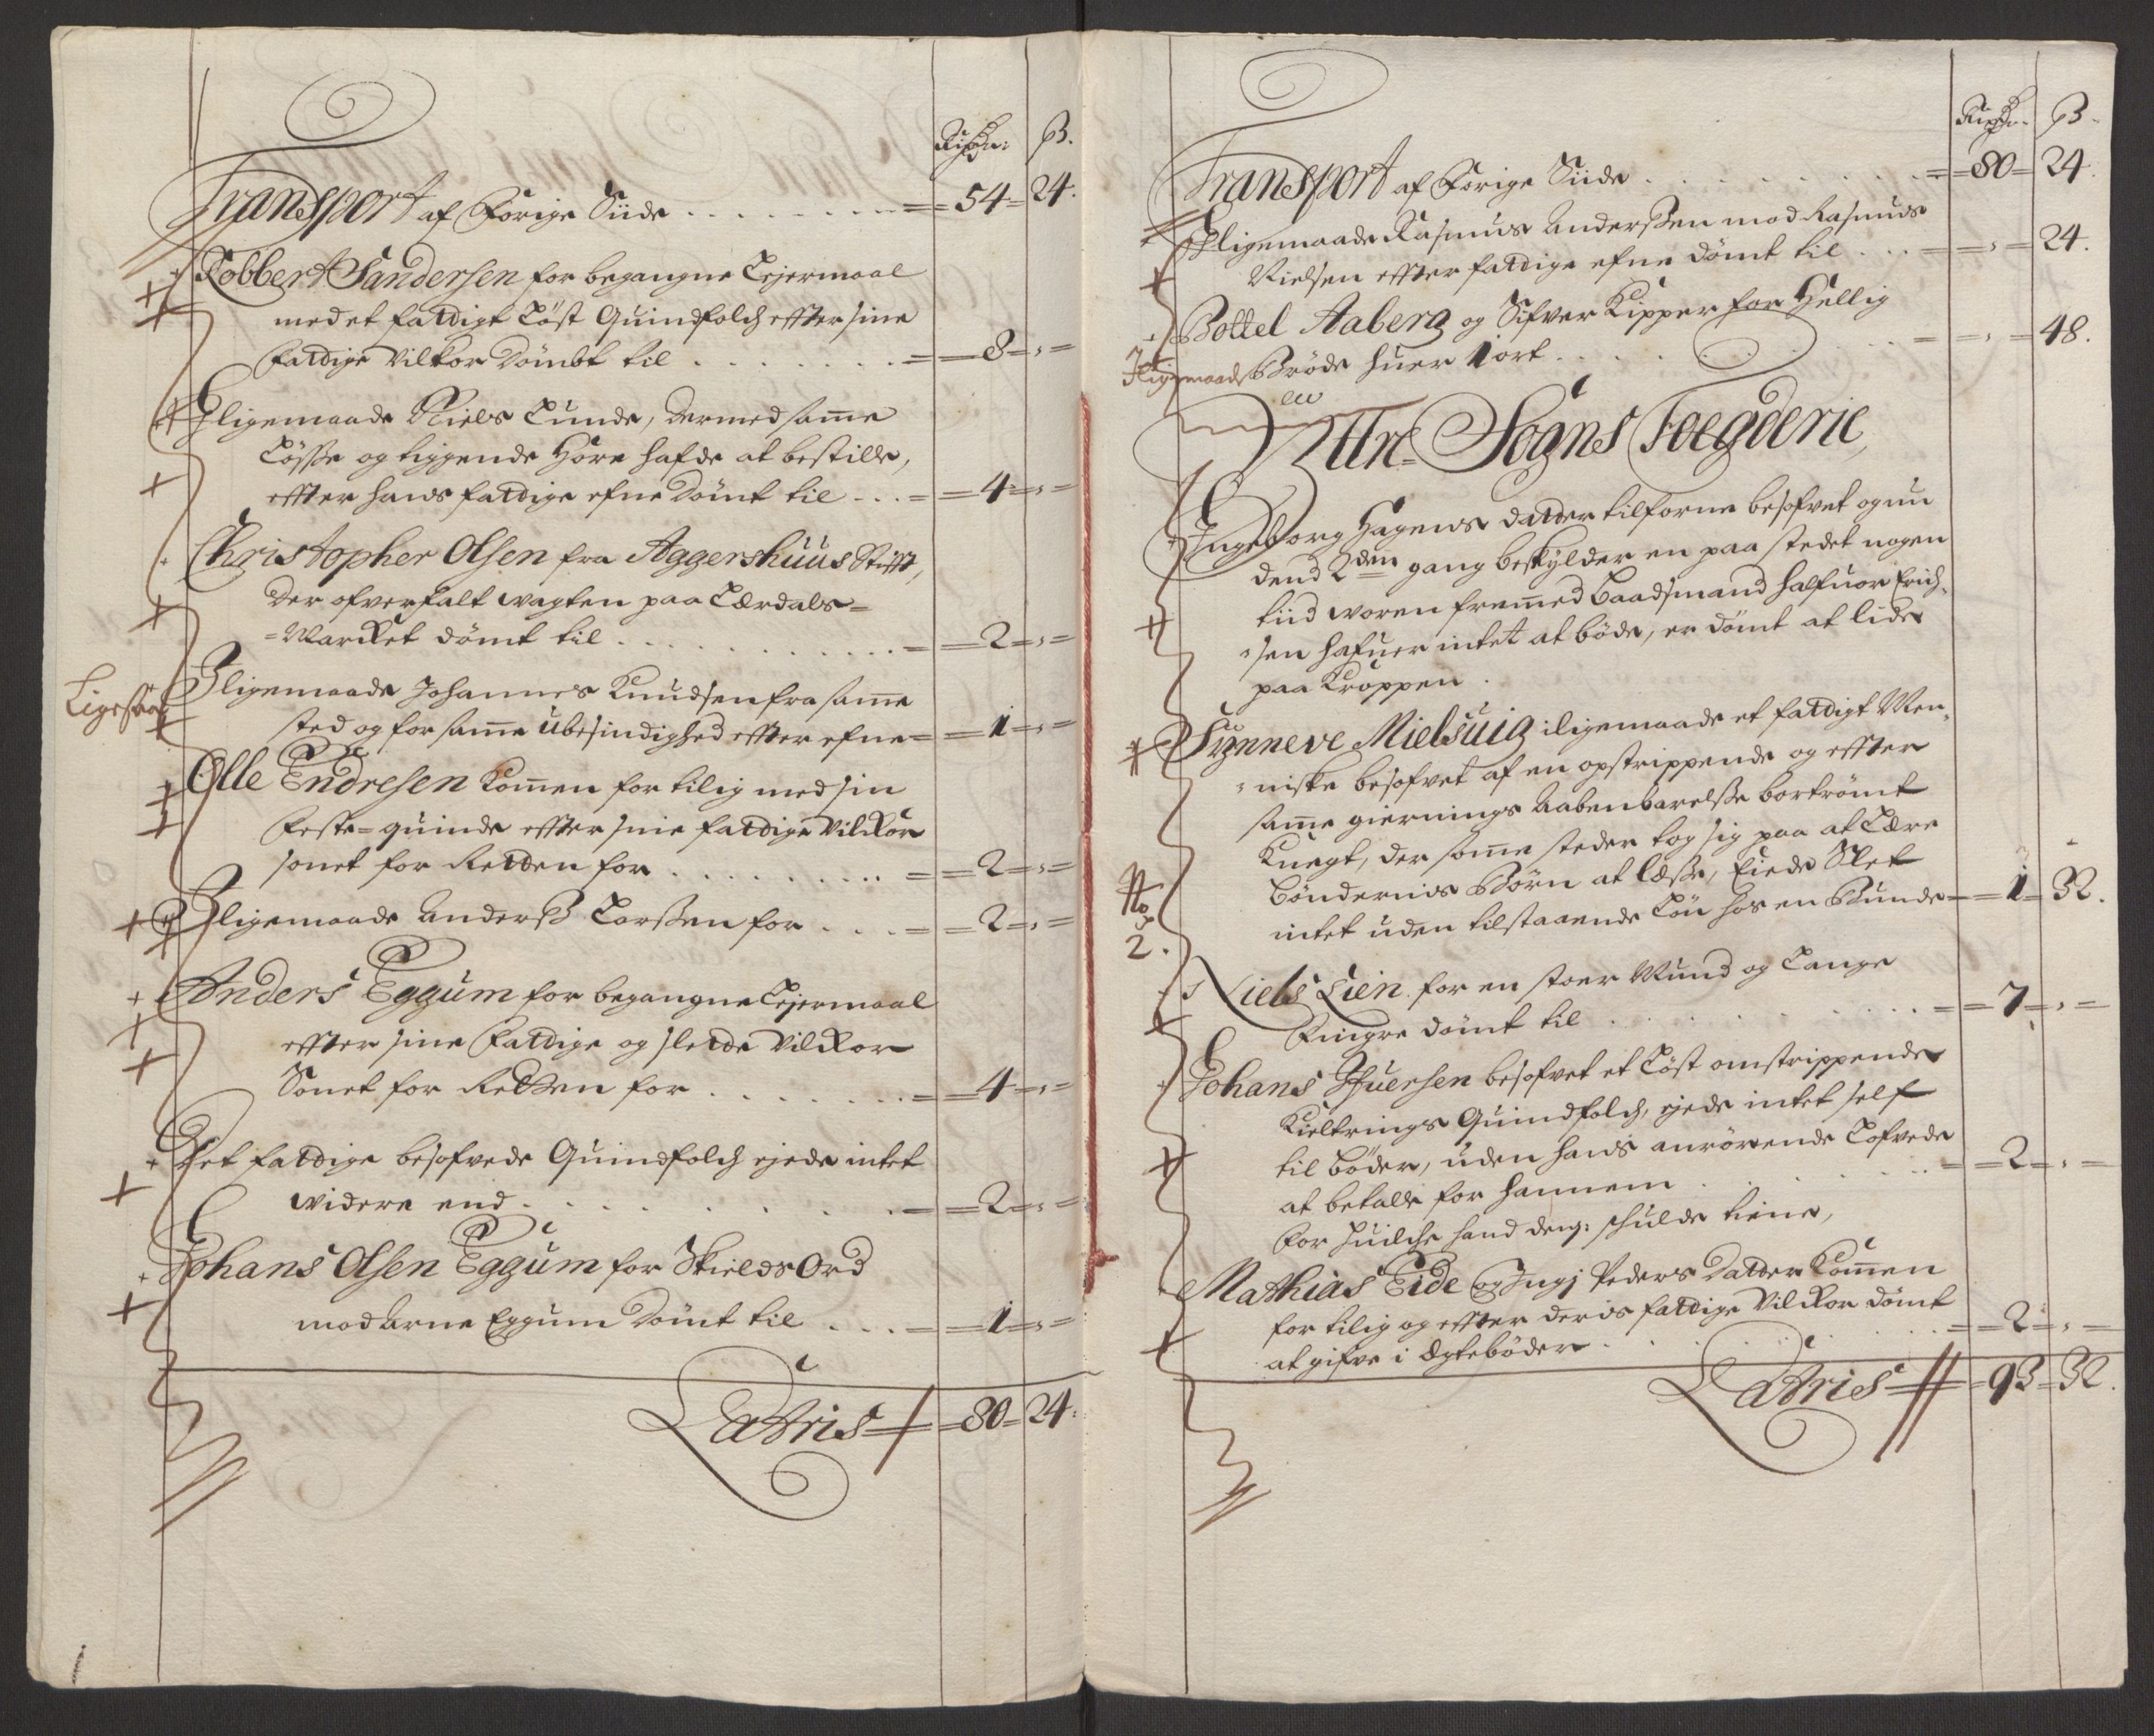 Rixdr: ß.
Transport af Forige Siide = 54 = 24.
Robbert Sandersen for begangne Lejermaal
med et fattigt Löst Quindfolch effter sine
fattige Vilkor Dömbt til = 8 = " =
Iligemaade Niels Lunde, der med samme
Lösse og liggende Hore hafde at bestille,
effter hans fattige efne Dömt til = 4 = " =
Christopher Olsen fra Aggershuus Stifft,
der ofverfalt wagten paa Lærdals=
=Marcket dömt til = 2 = " =
Ligesaa
Iligemaade Johannes Knudsen fra samme
sted og for samme Ubesindighed effter efne = 1 = " =
Olle Endresen Kommen for tilig med sin
feste=quinde effter sine fattige Vilckor
sonet for Retten for = 2 = " =
Iligemaade Anderß Larssen for = 2 = " =
Anders Eggum for begangne Lejermaal
effter sine fattige og slette Vilckor
Sonet for Retten for = 4 = " =
Det fattige besofvede Quindfolch ejede intet
widere end = 2 = " =
Johans Olsen Eggum for Skields Ord
mod Arne Eggum Dömt til = 1 = " =
Latris = 80 = 24:
Rixdr. ß.
Transport af Forige Siide = 80 = 24.
Iligemaade Rasmus Anderssen mod Rasmus
Nielsen effter fattige efne dömt til = " = 24.
Bottel Aaberg og Sifver Kipper for Hellig
Iligemaade Bröde huer 1 ort = " = 48.
Ittre Sogns Foegderie,
Ingeborg Hagens datter tilforne besofvet og nu
dend 2den gang beskylder en paa stedet nogen
tiid woren fremmed Baadsmand Halfuor Erich=
=sen hafuer intet at böde, er dömt at lide
paa Kroppen.
Synneve Mielsuig iligemaade et fattigt Men=
=niske besofvet af en opstrippende og effter
samme giernings Aabenbarelsse bortrömt
Knegt, der somme steder tog sig paa at Lære
Böndernis Börn at læsse, Eiede Slet
intet uden tilstaaende Lön hos en Bunde = 1 = 32.
No
2.
Niels Lien for en stoer Mund og Lange
Fingre dömt til = 7 = " =
Johans Ifuersen besofvet et Löst omstrippende
Kieltrings Quindfolch, ejede intet self
til böder, uden hans anrörende Lofvede
at betalle for hannem = 2 = " =
for huilche hand deng: schulde tiene,
Mathias Eide og Ingj Peders Datter Kommen
for tilig og effter deris fattige Vilckor dömt
at gifve i Ægtebøder = 2 = " =
Latris = 93 = 32.